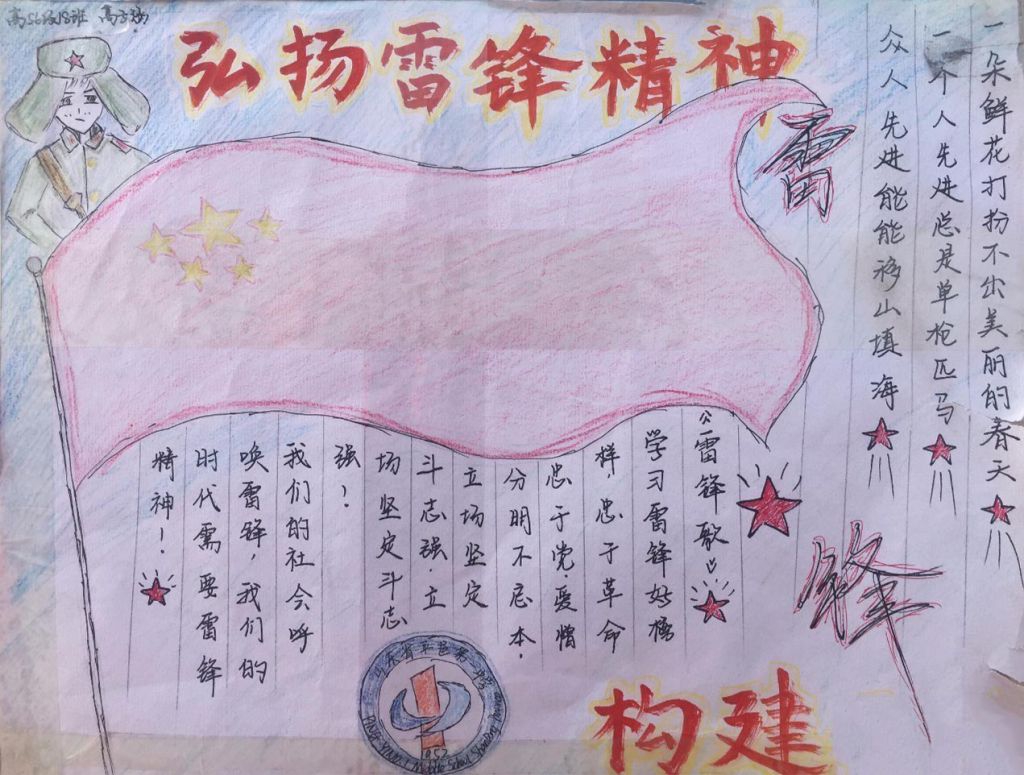 高56级18班
弘扬雷锋精神
一朵鲜花打扮不出美丽的春天
一个人先进总是单枪匹马
众人先进能能移山填海
雷
锋
《雷锋歌》
学习雷锋好榜
样，忠于革命
忠于党.爱憎
分明不忘本.
立场坚定
斗志强.立
场坚定斗志
强！
我们的社会呼
唤雷锋，我们的
时代需要雷锋
精神！
山东省平邑第一中学
Shandong Pingyi No.1 Middle School
1952
构建